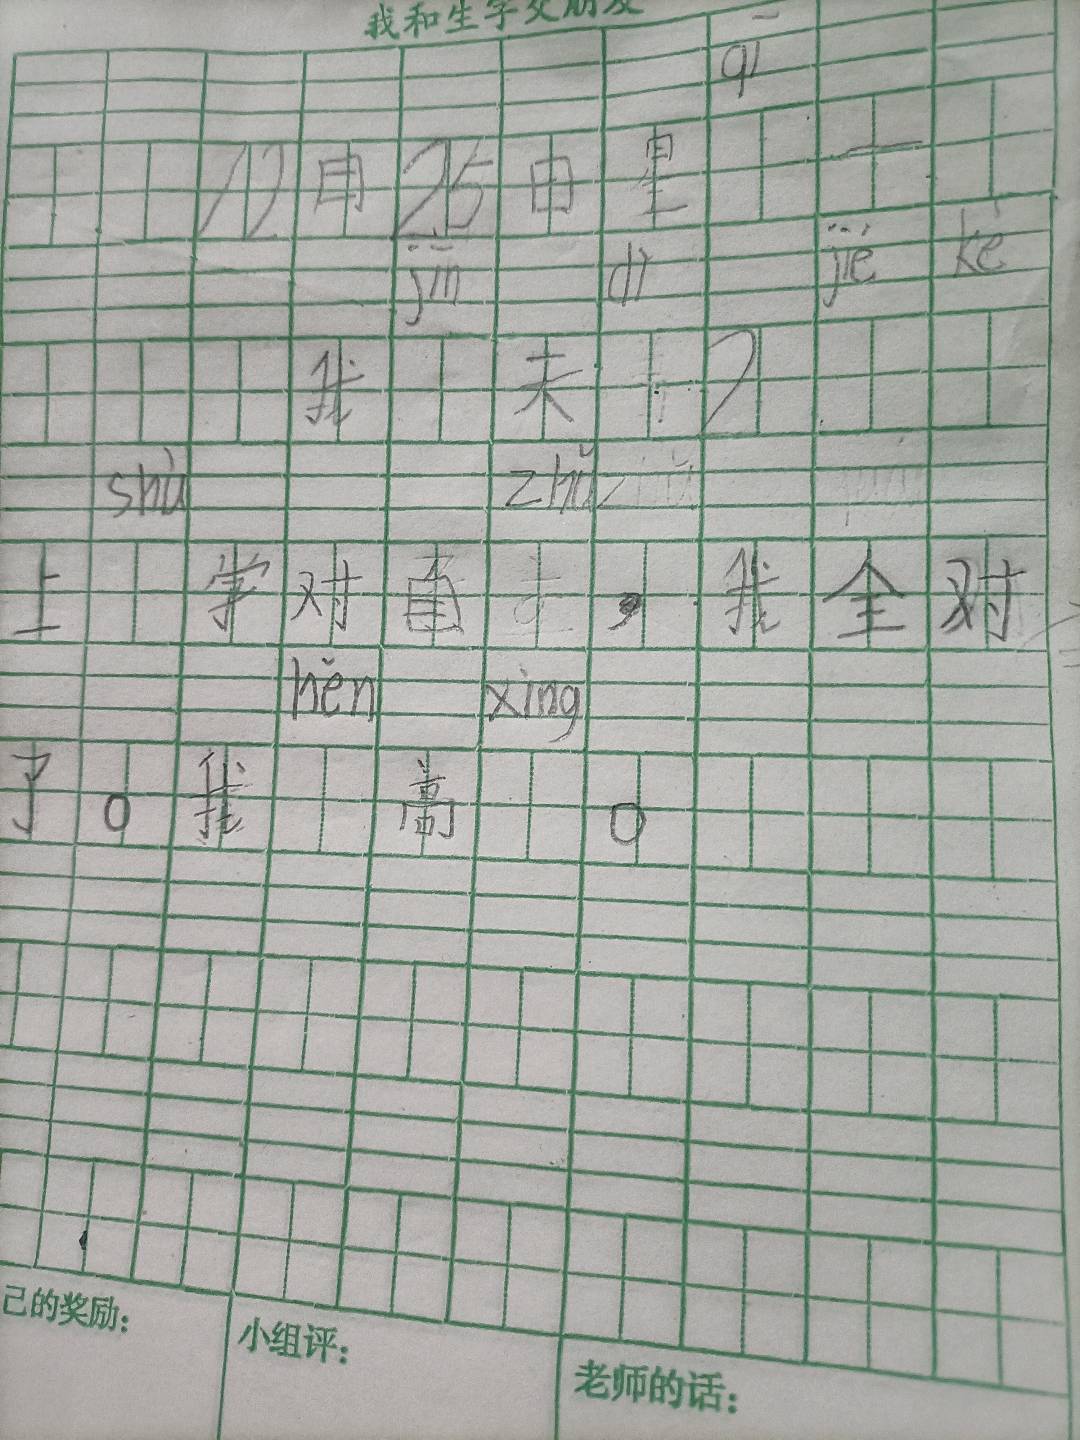 我和生字交朋友
qī
12 月 25 日 星 一
jīn dì jié kè
我 天 1
shù zhǔ
上 学 对 直 , 我 全 对
hěn xìng
了 。 我 高 。
己的奖励:
小组评:
老师的话: